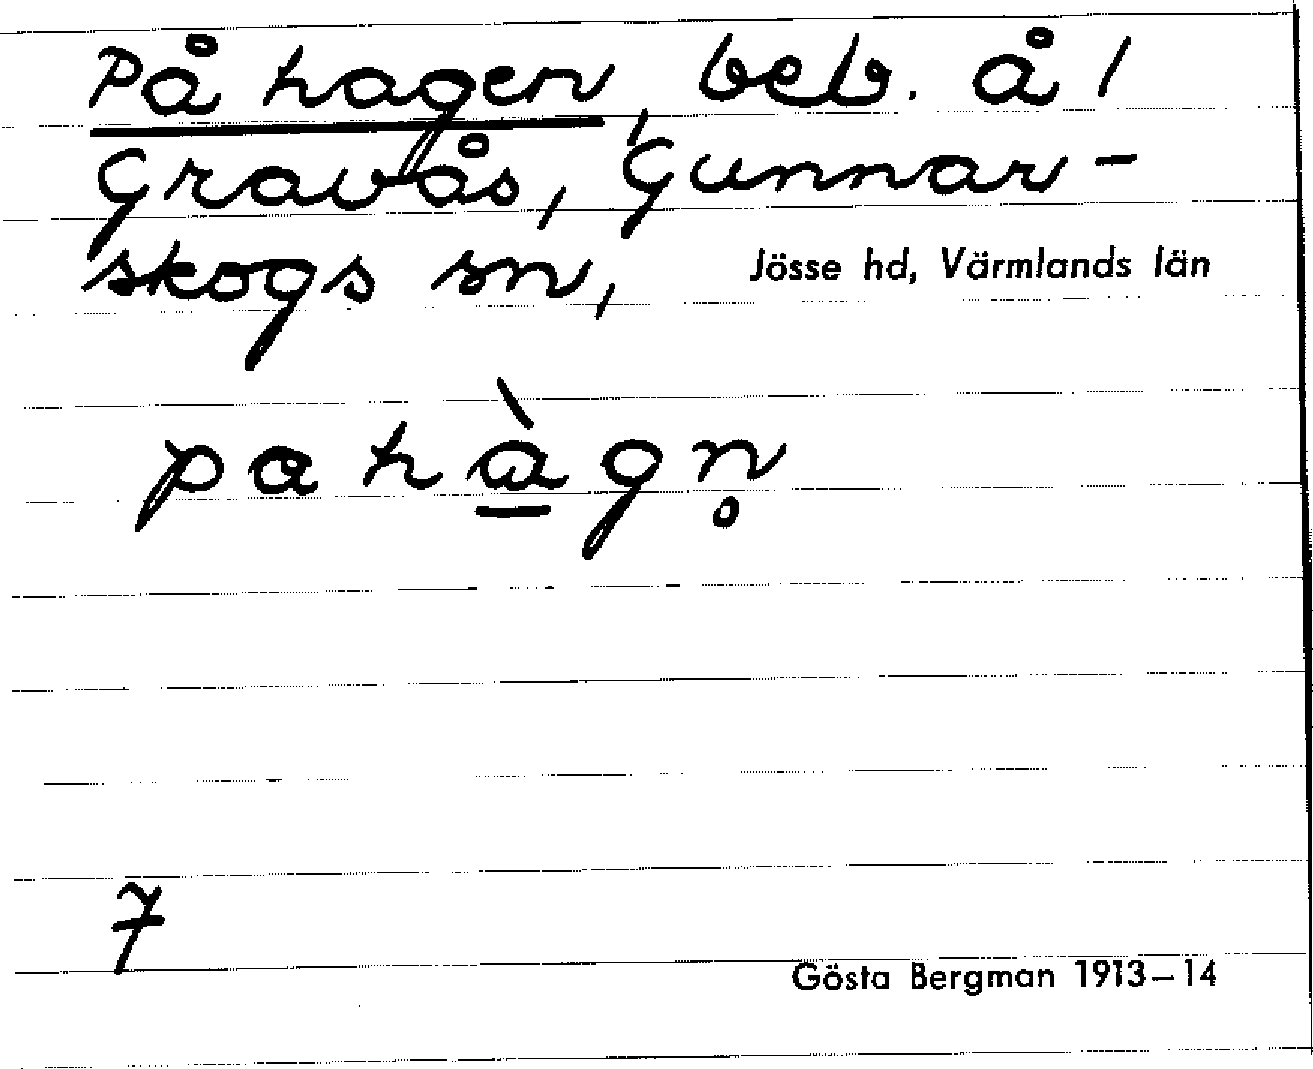 På hagen, beb. å 1
Gravås, Gunnar-
skogs sn, Jösse hd, Värmlands län
pahà̱gn̥
7
Gösta Bergman 1913–14